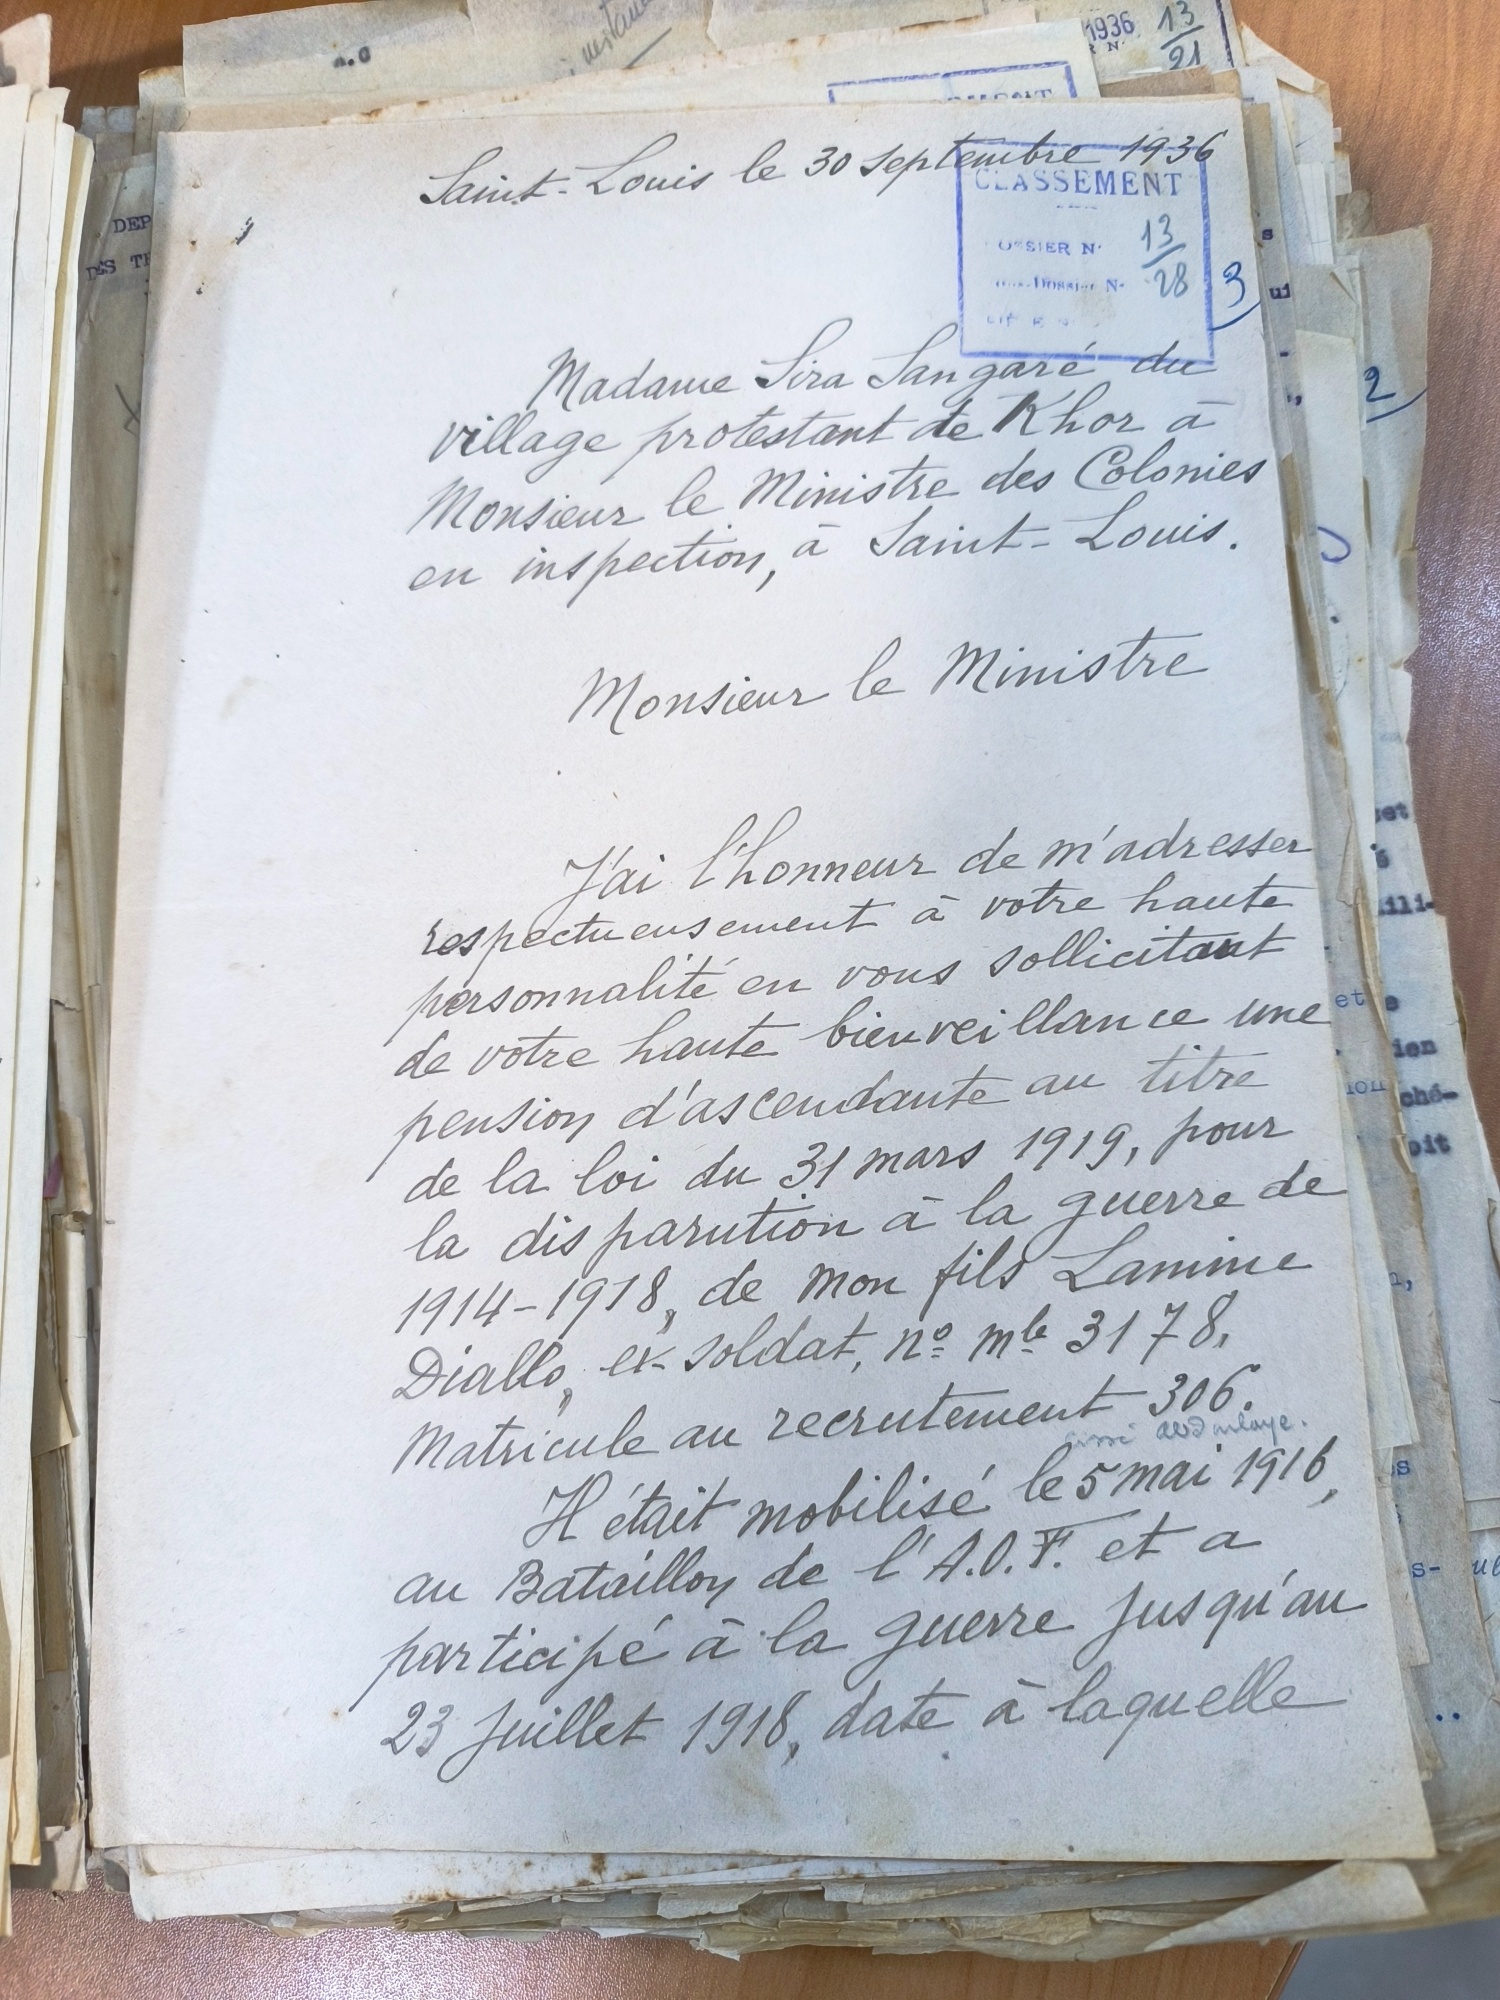 A.O
1936
13
21
Saint-Louis le 30 septembre 1936
CLASSEMENT
DOSSIER N°
13
28
3
2
DEP
DES TR
Madame Sira Sangaré du
village protestant de Khor à
Monsieur le Ministre des Colonies
en inspection, à Saint-Louis.
Monsieur le Ministre
J'ai l'honneur de m'adresser
respectueusement à votre haute
personnalité en vous sollicitant
de votre haute bienveillance une
pension d'ascendante au titre
de la loi du 31 mars 1919, pour
la disparution à la guerre de
1914-1918, de mon fils Lamine
Diallo, ex-soldat, nº mle 3178.
Matricule au recrutement 306.
Il était mobilisé le 5 mai 1916,
au Bataillon de l'A.O.F. et a
participé à la guerre jusqu'au
23 juillet 1918, date à laquelle